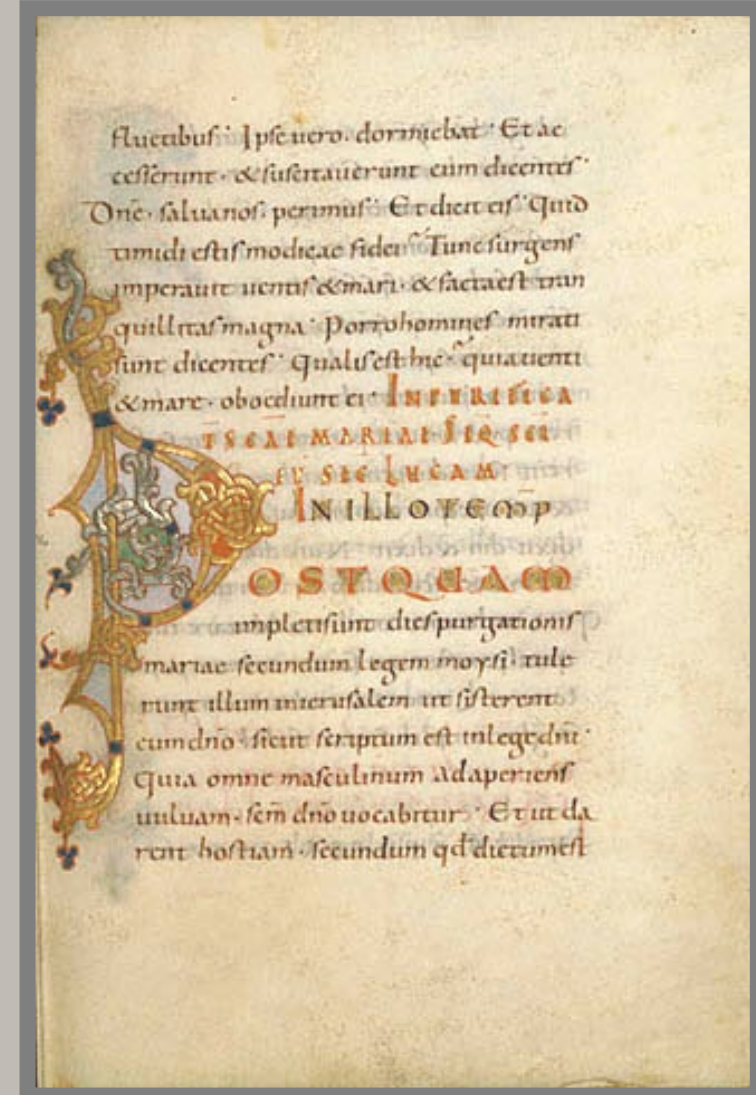 fluctibus. Ipse vero. dormiebat. Et ac
cesserunt. & suscitauerunt eum dicentes.
Dn̄e. saluanos. perimus. Et dicit eis. Quid
timidi estis modicae fidei. Tunc surgens
imperauit uentis & mari. & facta est tran
quillitas magna. Porro homines mirati
sunt dicentes. Qualis est hic. quia uenti
& mare. oboediunt ei. IN PURIFICA
T̄ SCAE MARIAE SEQ̄ SCI
EV̄ SEC LUCAM
IN ILLO TEMP̄
POSTQUAM
impleti sunt dies purgationis
mariae secundum legem moysi. tule
runt illum in ierusalem ut sisterent
eum dn̄o. sicut scriptum est in lege dn̄i.
Quia omne masculinum adaperiens
uuluam. sc̄m dn̄o uocabitur. Et ut da
rent hostiam. secundum qd̄ dictum est